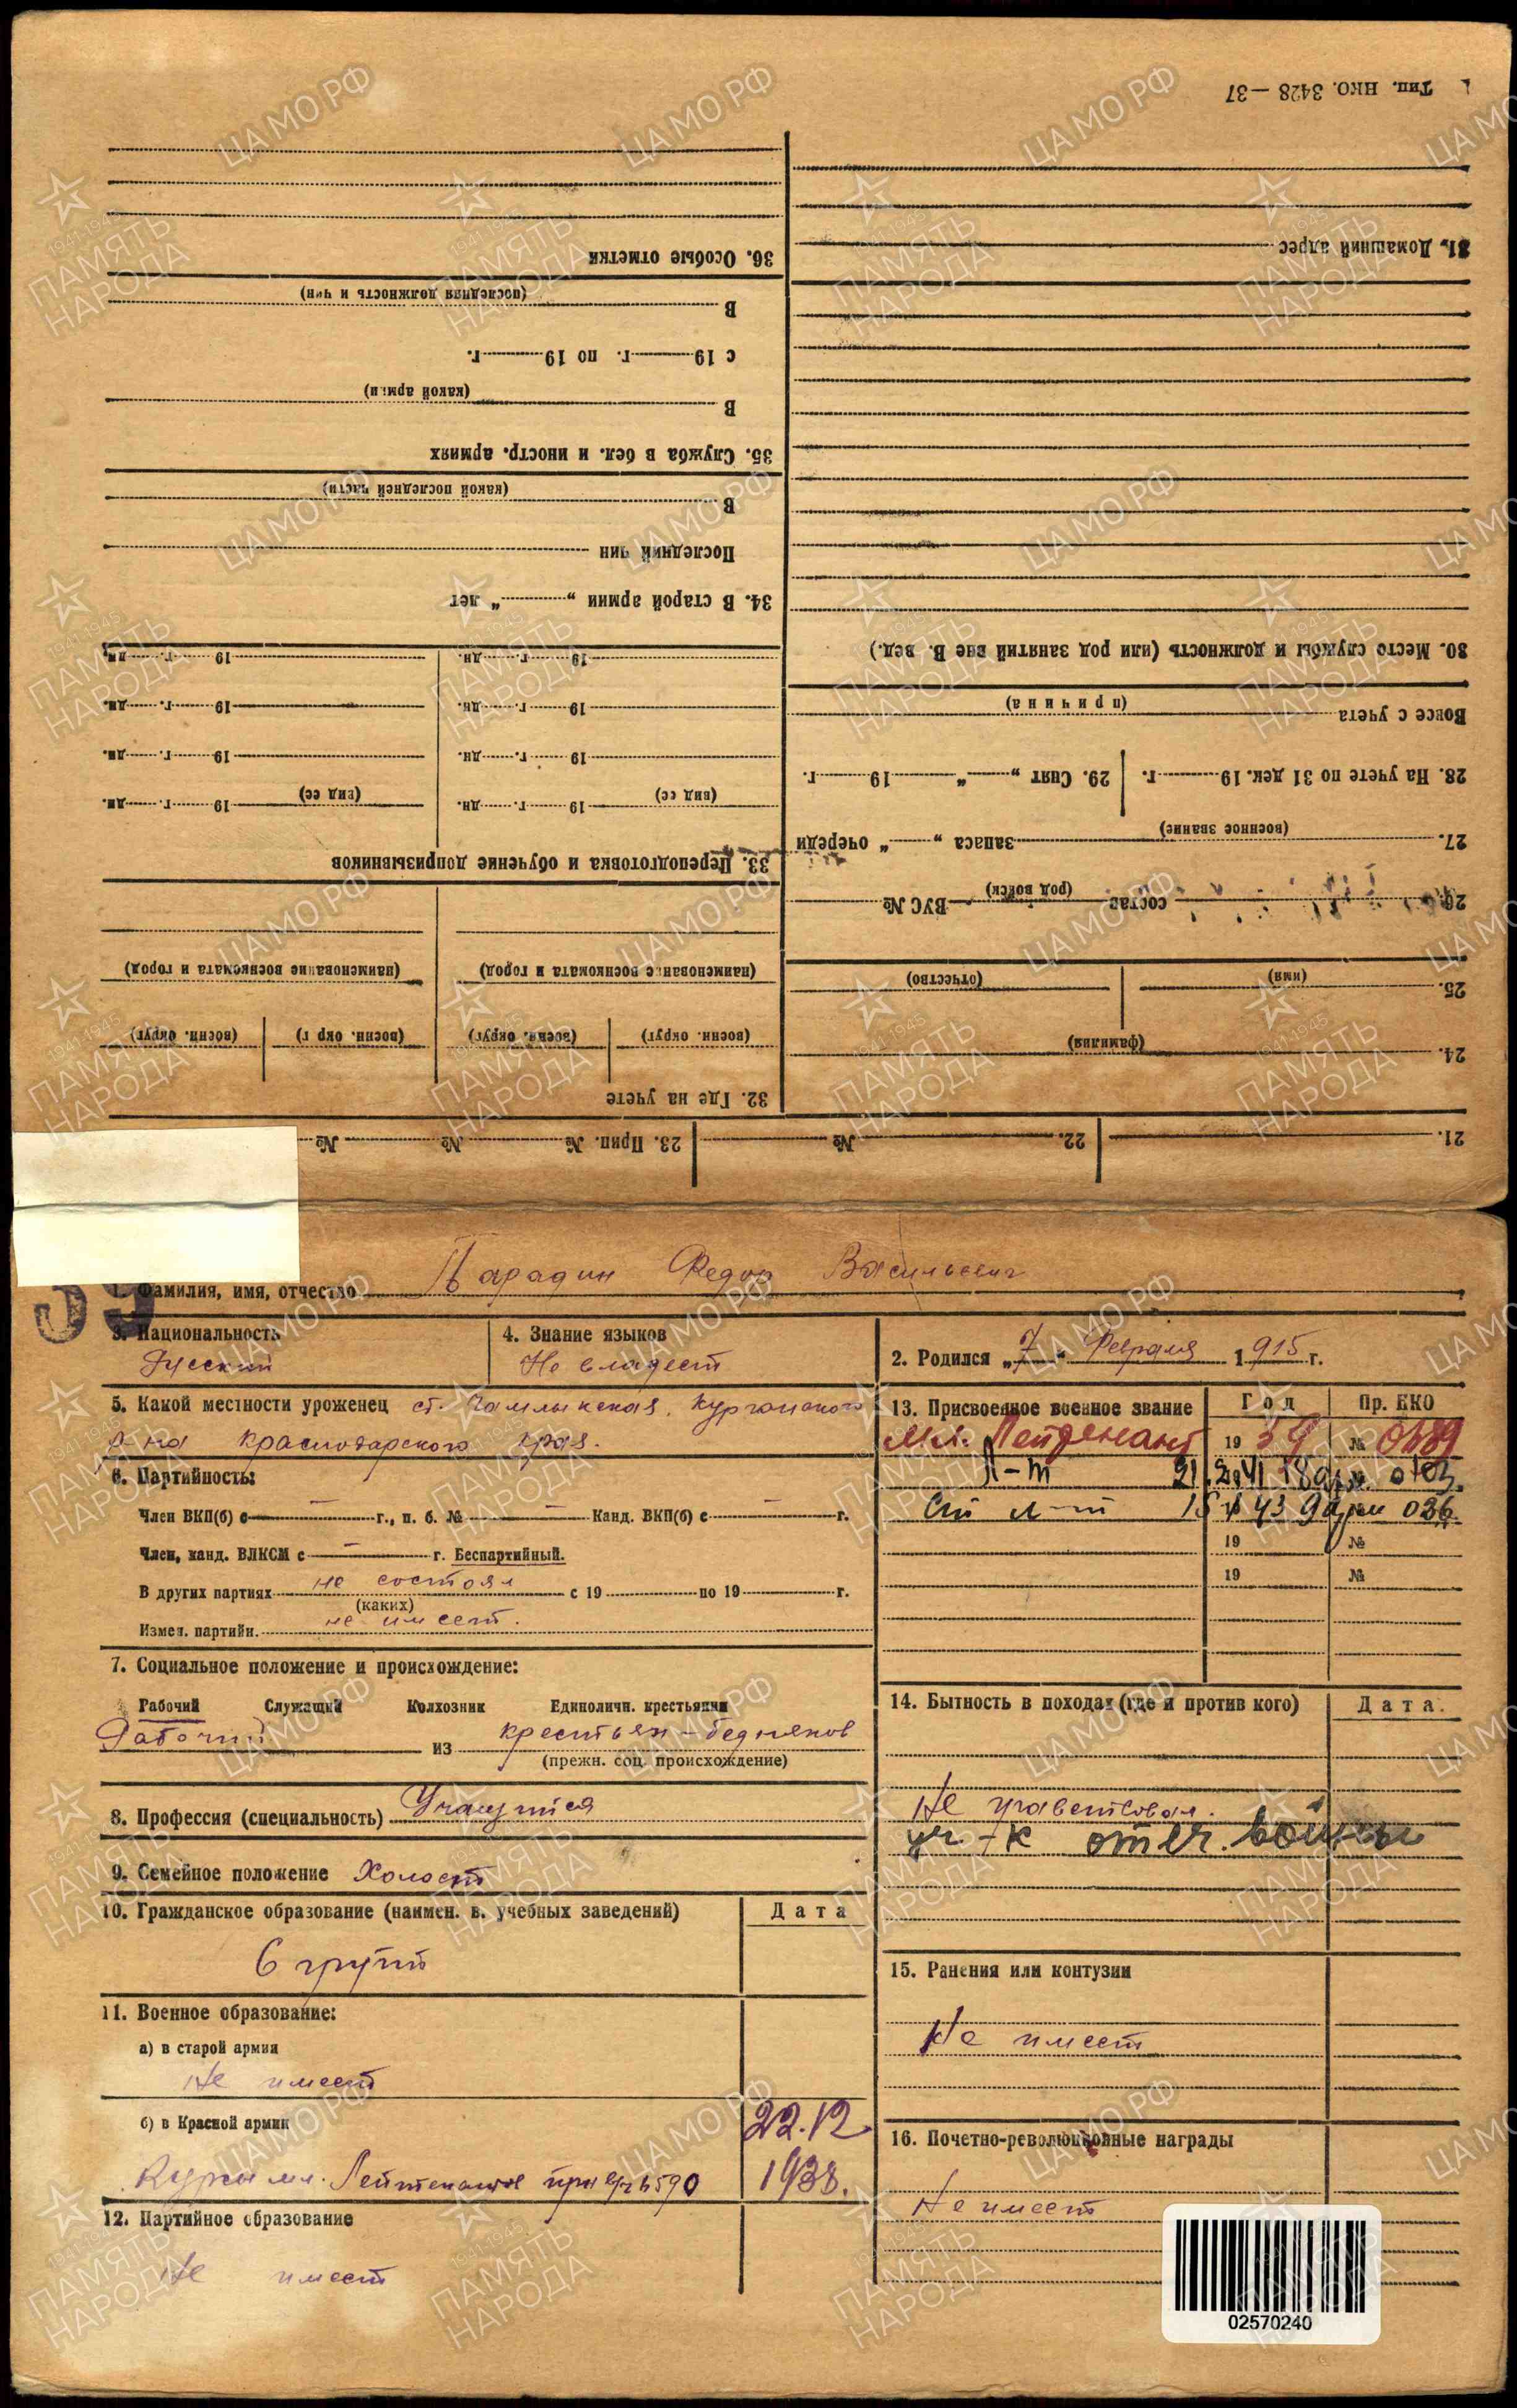 Тип. НКО. 3428—37
31. Домашний адрес
30. Место службы и должность (или род занятий вне В. вед.)
Вовсе с учета
(причина)
28. На учете по 31 дек. 19 г. 29. Снят „ “ 19 г.
27. запаса „ “ очереди
(военное звание)
26. состав ВУС №
(род войск)
25.
(имя) (отчество)
24.
(фамилия)
21. № 22. № 23. Прип. № № №
36. Особые отметки
В
(последняя должность и чин)
с 19 г. по 19 г.
В
(какой армии)
35. Служба в бел. и иностр. армиях
В
(какой последней части)
Последний чин
34. В старой армии „ “ лет
19 г. дн. 19 г. дн.
19 г. дн. 19 г. дн.
19 г. дн. 19 г. дн.
(вид сс) 19 г. дн. (вид сс) 19 г. дн.
33. Переподготовка и обучение допризывников
(наименование военкомата и город) (наименование военкомата и город)
(военн. округ) (военн. округ) (военн. окр г) (военн. округ)
32. Где на учете
59
Фамилия, имя, отчество Парадин Федор Васильевич
3. Национальность
Русский
4. Знание языков
Не владеет
2. Родился „7“ Февраля 1915 г.
5. Какой местности уроженец ст. Чамлыкская, Курганского
р-на Краснодарского края.
6. Партийность:
Член ВКП(б) с — г., п. б. № — Канд. ВКП(б) с — г.
Член, канд. ВЛКСМ с — г. Беспартийный.
В других партиях не состоял с 19 по 19 г.
(каких)
Измен. партийн. не имеет.
7. Социальное положение и происхождение:
Рабочий Служащий Колхозник Единоличн. крестьянин
Рабочий из крестьян-бедняков
(прежн. соц. происхождение)
8. Профессия (специальность) Учащийся
9. Семейное положение Холост
10. Гражданское образование (наимен. в. учебных заведений) Дата
6 групп
11. Военное образование:
а) в старой армии
Не имеет
б) в Красной армии
Курсы мл. Лейтенантов при в/ч 6590
22.12
1938.
12. Партийное образование
Не имеет
13. Присвоенное военное звание Год Пр. НКО
Мл. Лейтенант 19 39 № 0489
Л-т 21.2.41 18
Ст л-т 15 43 9 арм 036
19 №
19 №
14. Бытность в походах (где и против кого) Дата.
Не учавствовал.
уч-к отеч. войны
15. Ранения или контузии
Не имеет
16. Почетно-революционные награды
Не имеет
02570240
ЦАМО РФ
1941-1945
ПАМЯТЬ
НАРОДА